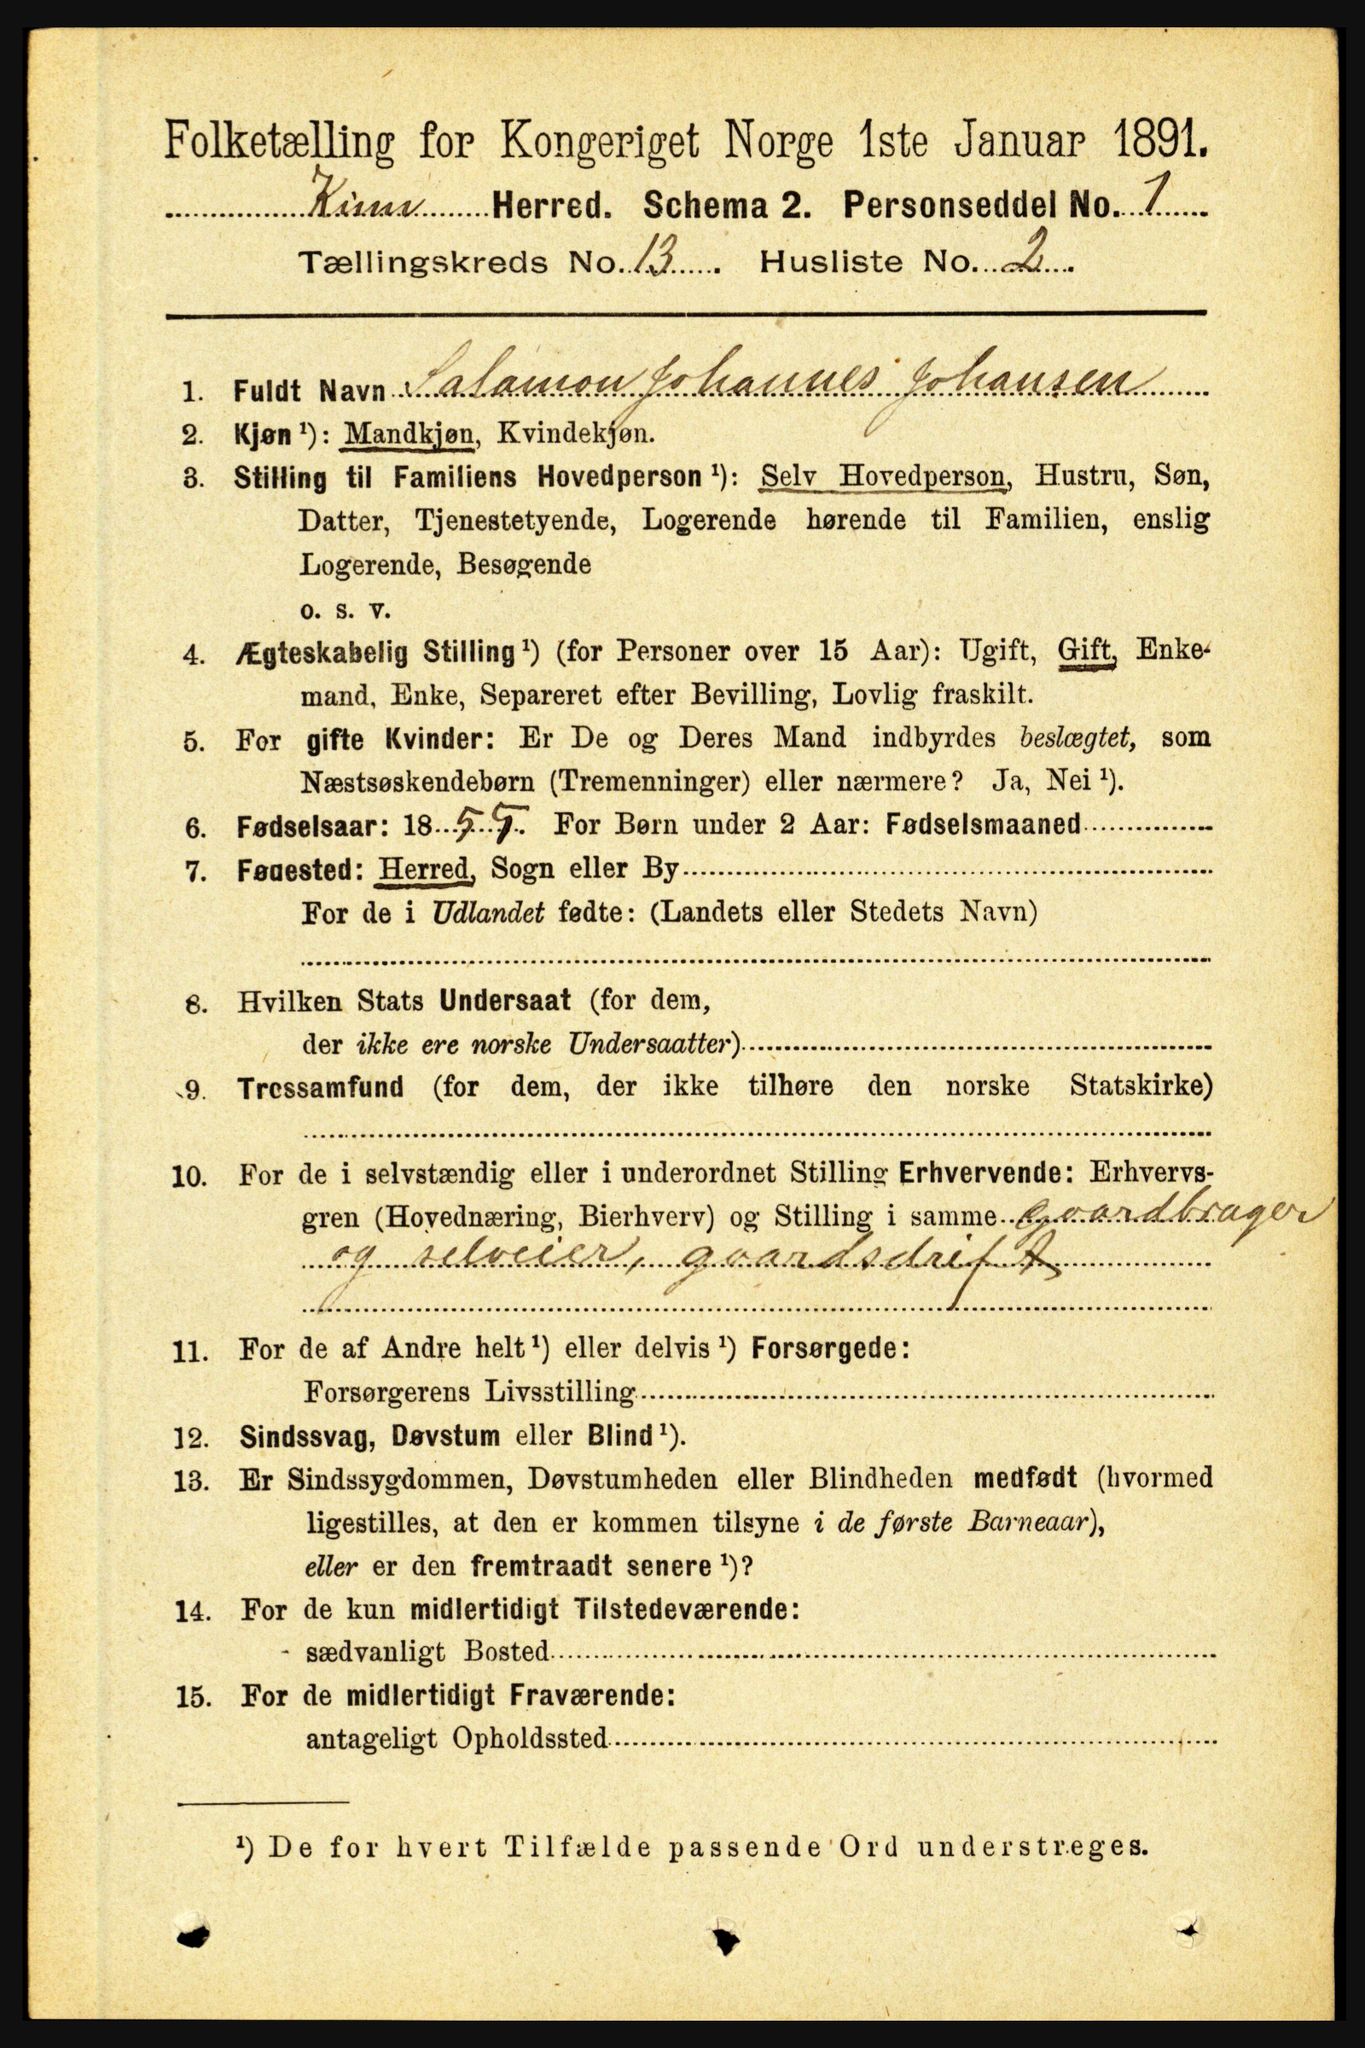 Folketælling for Kongeriget Norge 1ste Januar 1891.
Kinn Herred. Schema 2. Personseddel No. 1
Tællingskreds No. 13. Husliste No. 2.
1. Fuldt Navn Salamon Johannes Johansen
2. Kjøn ¹): Mandkjøn, Kvindekjøn.
3. Stilling til Familiens Hovedperson ¹): Selv Hovedperson, Hustru, Søn,
Datter, Tjenestetyende, Logerende hørende til Familien, enslig
Logerende, Besøgende
o. s. v.
4. Ægteskabelig Stilling ¹) (for Personer over 15 Aar): Ugift, Gift, Enke-
mand, Enke, Separeret efter Bevilling, Lovlig fraskilt.
5. For gifte Kvinder: Er De og Deres Mand indbyrdes beslægtet, som
Næstsøskendebørn (Tremenninger) eller nærmere? Ja, Nei ¹).
6. Fødselsaar: 1855. For Børn under 2 Aar: Fødselsmaaned
7. Fødested: Herred, Sogn eller By
For de i Udlandet fødte: (Landets eller Stedets Navn)
8. Hvilken Stats Undersaat (for dem,
der ikke ere norske Undersaatter)
9. Trossamfund (for dem, der ikke tilhøre den norske Statskirke)
10. For de i selvstændig eller i underordnet Stilling Erhvervende: Erhvervs-
gren (Hovednæring, Bierhverv) og Stilling i samme gaardbrager
og selveier, gaardsdrift
11. For de af Andre helt ¹) eller delvis ¹) Forsørgede:
Forsørgerens Livsstilling
12. Sindssvag, Døvstum eller Blind ¹).
13. Er Sindssygdommen, Døvstumheden eller Blindheden medfødt (hvormed
ligestilles, at den er kommen tilsyne i de første Barneaar),
eller er den fremtraadt senere ¹)?
14. For de kun midlertidigt Tilstedeværende:
sædvanligt Bosted
15. For de midlertidigt Fraværende:
antageligt Opholdssted
¹) De for hvert Tilfælde passende Ord understreges.